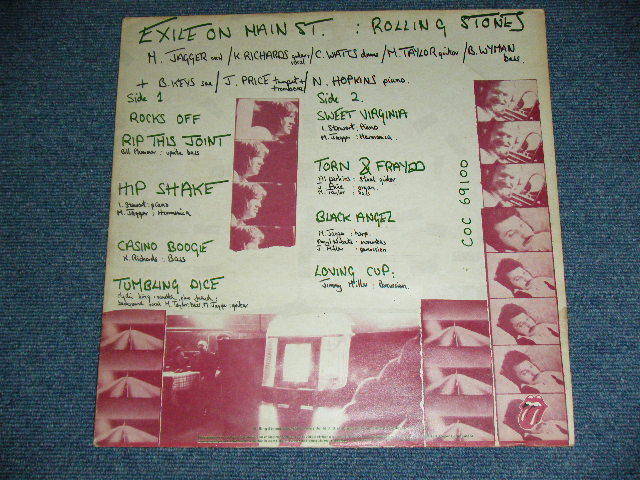 EXILE ON MAIN ST. : ROLLING STONES
M. JAGGER / K. RICHARDS guitar, vocal / C. WATTS drums / M. TAYLOR guitar / B. WYMAN bass.
+ B. KEYS sax / J. PRICE trumpet + trombone / N. HOPKINS piano.
Side 1
ROCKS OFF
RIP THIS JOINT
Bill Plummer : uprite bass
HIP SHAKE
I. Stewart : piano
M. Jagger : Harmonica
CASINO BOOGIE
K. Richards : Bass
TUMBLING DICE
M. Taylor : bass, M. Jagger : guitar
Side 2.
SWEET VIRGINIA
I. Stewart : Piano
M. Jagger : Harmonica.
TORN & FRAYED
Al Perkins : steel guitar
J. Price : organ.
M. Taylor : bass
BLACK ANGEL
M. Jagger : harp.
J. Miller : percussion
LOVING CUP:
Jimmy Miller : Percussion.
COC 69100